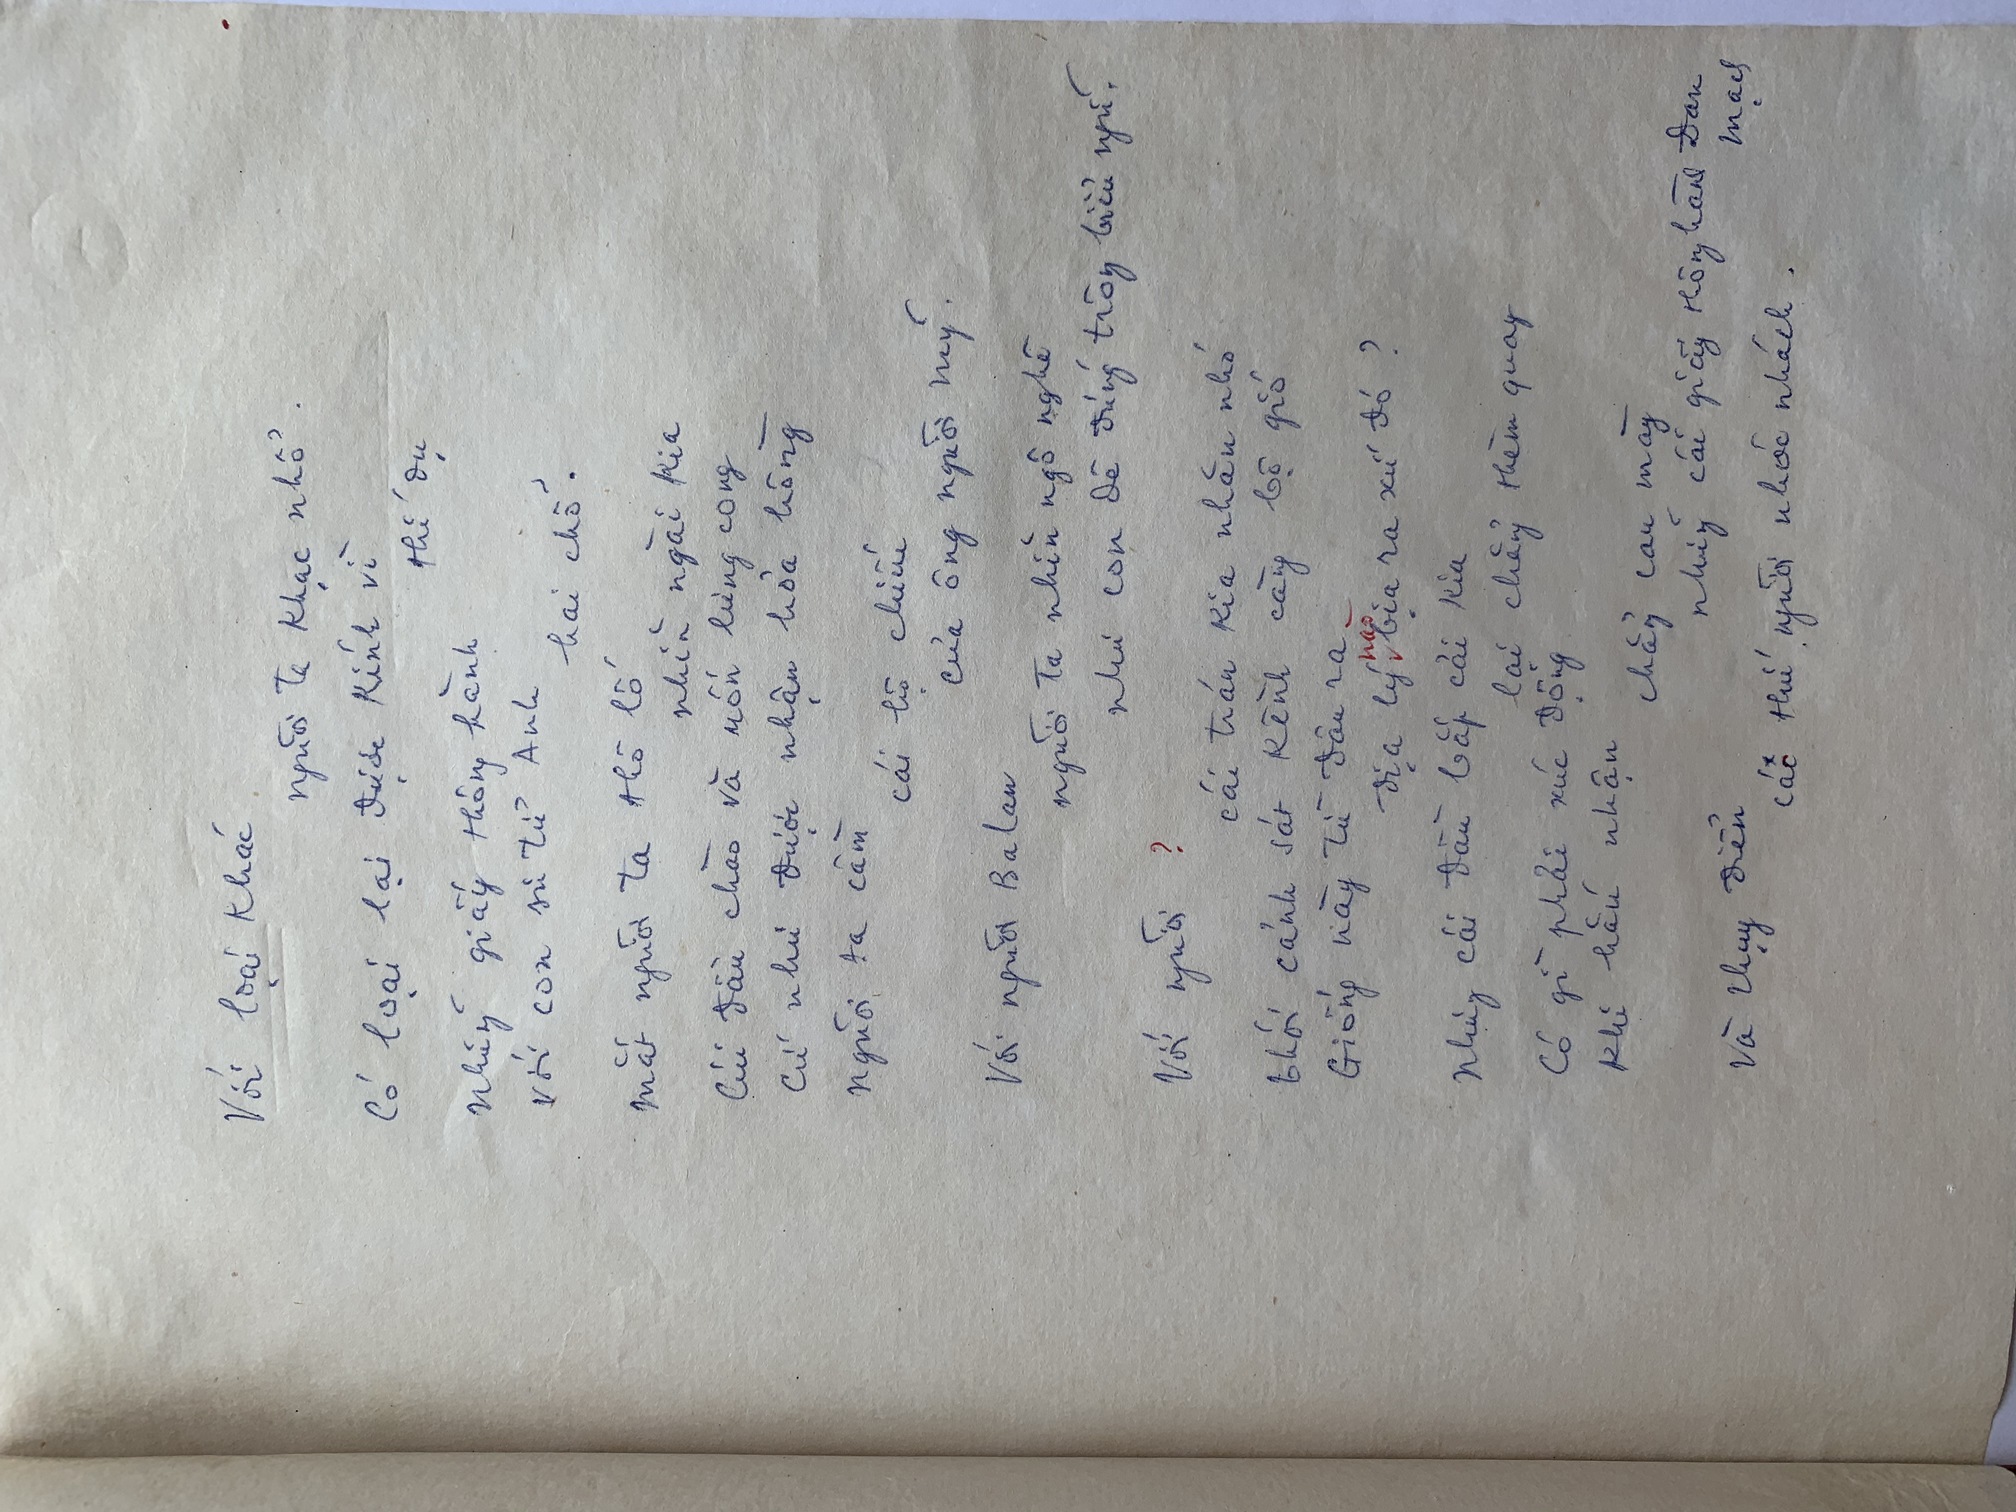 Với loại khác
người ta khạc nhổ.
Có loại lại được kính vì
thí dụ
Những giấy thông hành
với con sư tử Anh
hai chỗ.
Mắt người ta thô lố
nhìn ngài kia
Cúi đầu chào và uốn lưng cong
Cứ như được nhận hỏa hồng
Người ta cầm
cái hộ chiếu
của ông người Mỹ.
Với người Balan
người ta nhìn ngô nghê
như con dê đứng trông biểu ngữ.
Với người ?
cái trán kia nhăn nhó
bhới cảnh sát kềnh càng bộ gió
Giống này từ đâu ra
địa lý nào bịa ra xứ đó ?
Nhưng cái đầu bắp cải kia
lại chẳng thèm quay
Có gì phải xúc động
khi hắn nhận
chẳng cau mày
những cái giấy thông hành Đan
Mạch
Và Thụy Điển
các thứ người nhóc nhách.